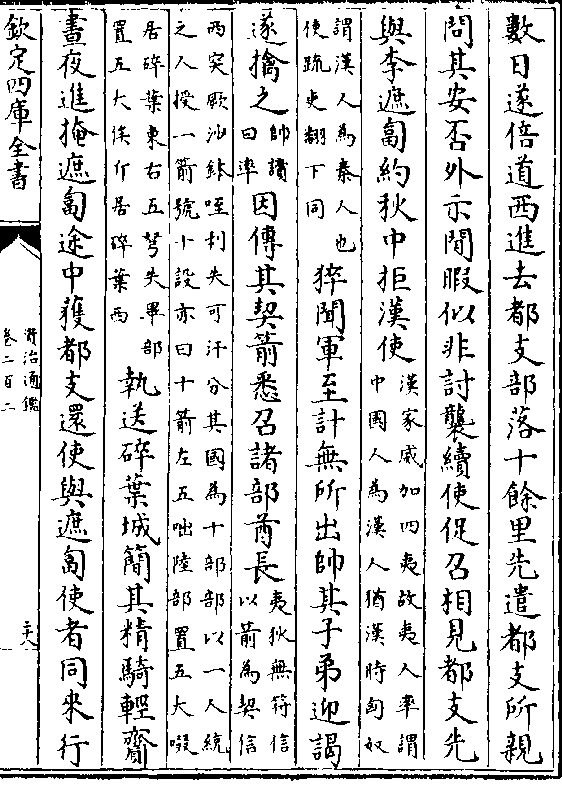 數日遂倍道西進去都支部落十餘里先遣都支所親
問其安否外示閒暇似非討襲續使促召相見都支先
與李遮匐約秋中拒漢使漢家威加四夷故夷人率謂
中國人為漢人猶漢時匈奴
謂漢人為秦人也
使疏吏翻下同猝聞軍至計無所出帥其子弟迎謁
遂擒之帥讀
曰率因傳其契箭悉召諸部酋長夷狄無符信
以箭為契信
西突厥沙鉢咥利失可汗分其國為十部部以一人統
之人授一箭號十設亦曰十箭左五咄陸部置五大啜
居碎葉東右五弩失畢部
置五大俟斤居碎葉西執送碎葉城簡其精騎輕齎
晝夜進掩遮匐途中獲都支還使與遮匐使者同來行
欽定四庫全書
資治通鑑
卷二百二
二十八